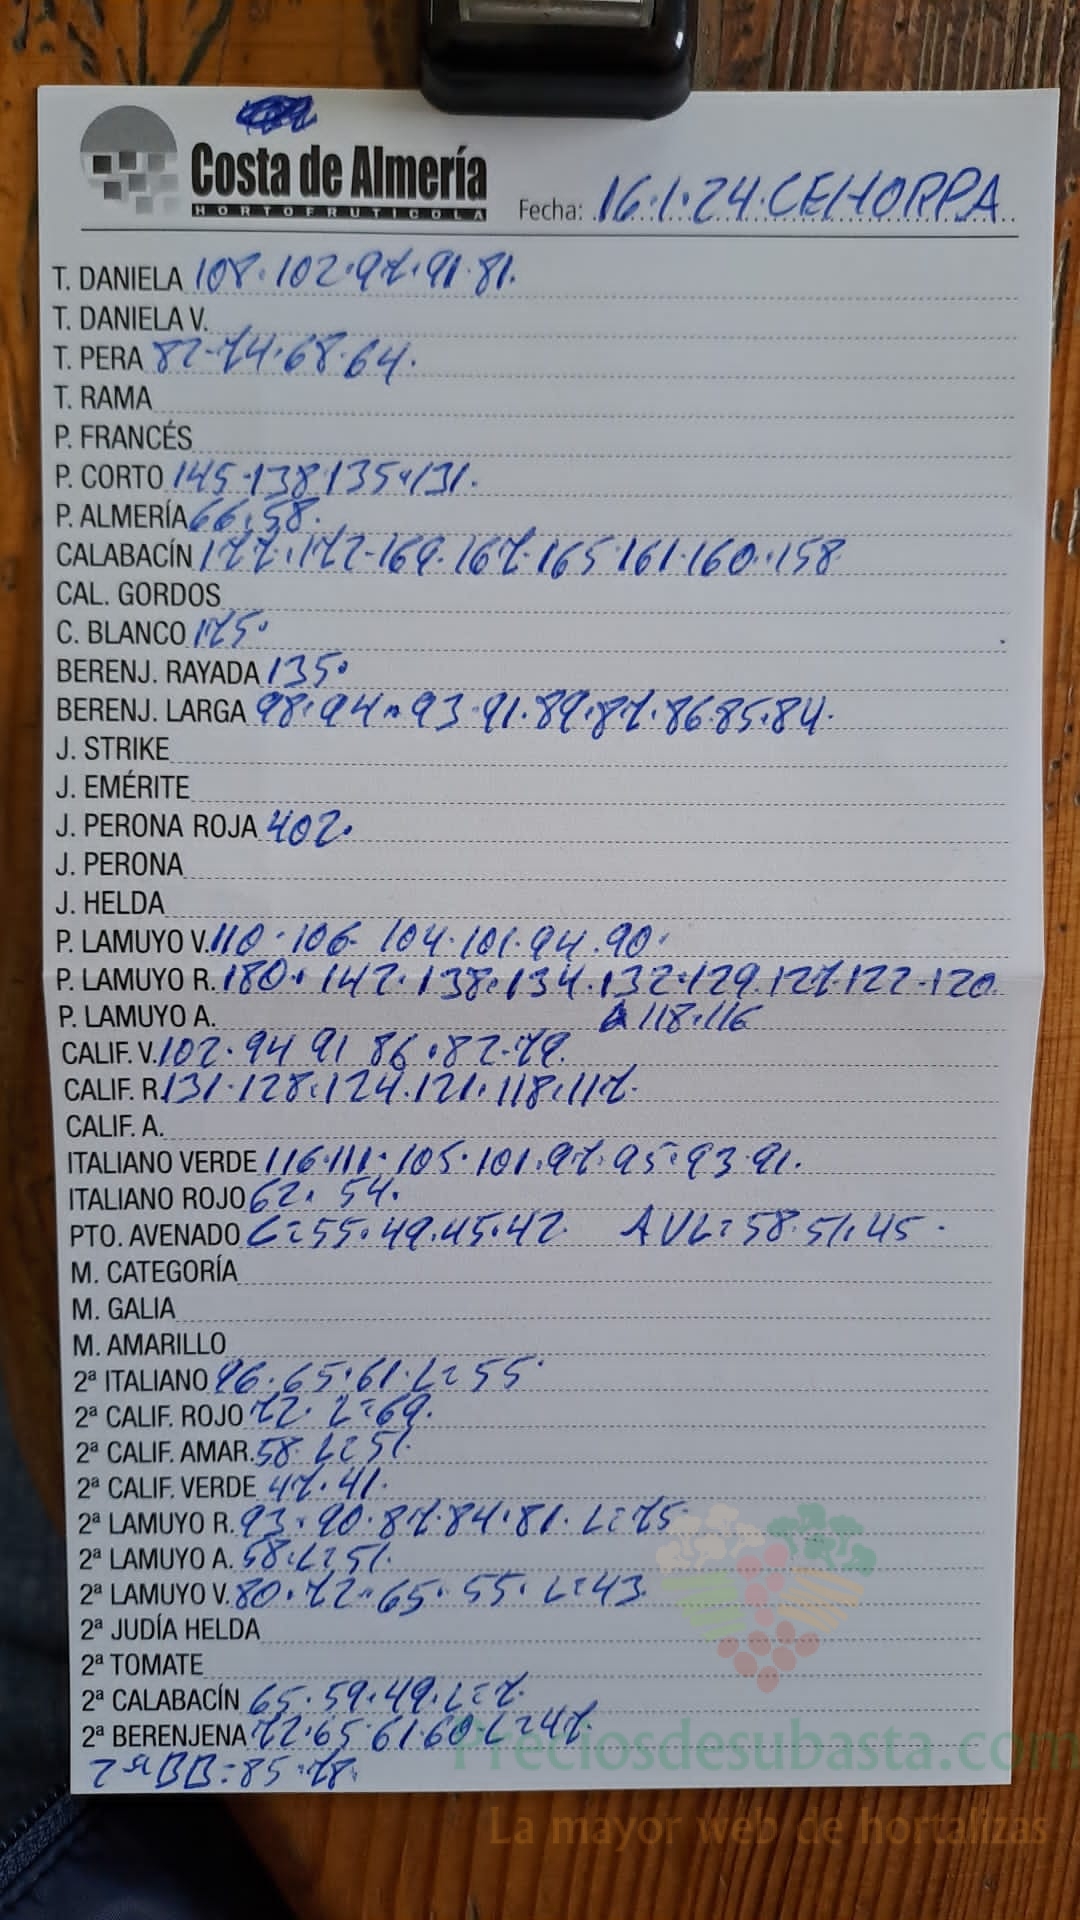 Costa de Almería
HORTOFRUTICOLA
Fecha: 16.1.24.CEHORPA
T. DANIELA 108.102.97.91.81.
T. DANIELA V.
T. PERA 82-74.68.64.
T. RAMA
P. FRANCÉS
P. CORTO 145.138.135.131.
P. ALMERÍA 66.58.
CALABACÍN 177.172-169.167.165 161.160.158
CAL. GORDOS
C. BLANCO 175.
BERENJ. RAYADA 135.
BERENJ. LARGA 98.94.93.91.89.87.86.85.84.
J. STRIKE
J. EMÉRITE
J. PERONA ROJA 402.
J. PERONA
J. HELDA
P. LAMUYO V. 110.106. 104.101.94.90.
P. LAMUYO R. 180.142.138.134.132.129.127.122-120.
P. LAMUYO A. 118.116
CALIF. V. 102.94 91 86.82.79.
CALIF. R. 131.128.124.121.118.117.
CALIF. A.
ITALIANO VERDE 116.111.105.101.97.95.93.91.
ITALIANO ROJO 62. 54.
PTO. AVENADO L=55.49.45.42. AVL=58.51.45.
M. CATEGORÍA
M. GALIA
M. AMARILLO
2ª ITALIANO 96.65.61.L=55.
2ª CALIF. ROJO 72. L=69.
2ª CALIF. AMAR. 58. L=51.
2ª CALIF. VERDE 47.41.
2ª LAMUYO R. 93.90.87.84.81. L=75.
2ª LAMUYO A. 58.L=51.
2ª LAMUYO V. 80.72.65.55. L=43.
2ª JUDÍA HELDA
2ª TOMATE
2ª CALABACÍN 65.59.49.L=7.
2ª BERENJENA 72.65.61.60 L=47.
2ªBB=85.78.
Preciosdesubasta.com
La mayor web de hortalizas